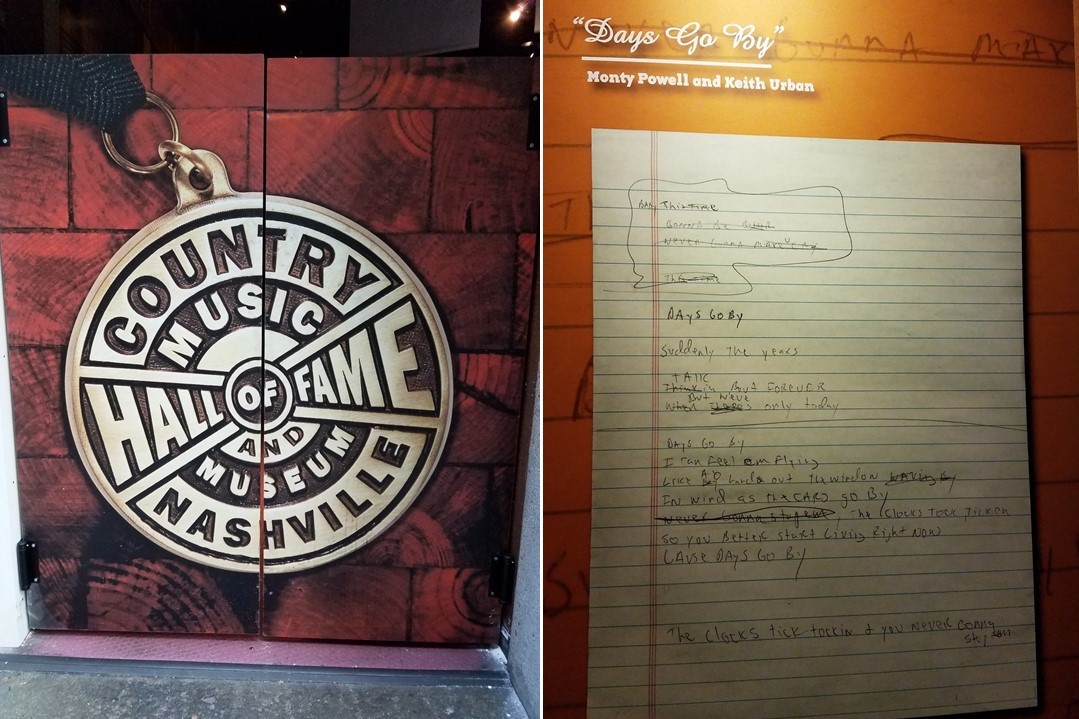 COUNTRY
MUSIC
HALL OF FAME
AND
MUSEUM
NASHVILLE
“Days Go By”
Monty Powell and Keith Urban
This time
Gonna Be
never
This time
DAYS GO By
Suddenly The years
TALK
Thinkin Bout FOREVER
But Weve
When only today
DAYS GO By
I can feel em flying
Like A hand out The window waving By
In wind as the CARS go By
Never Gonna stop em The Clocks Tick Tickin
So you Better start Living Right Now
CAUSE DAYS GO By
The clocks tick tockin & you never gonna
stop em